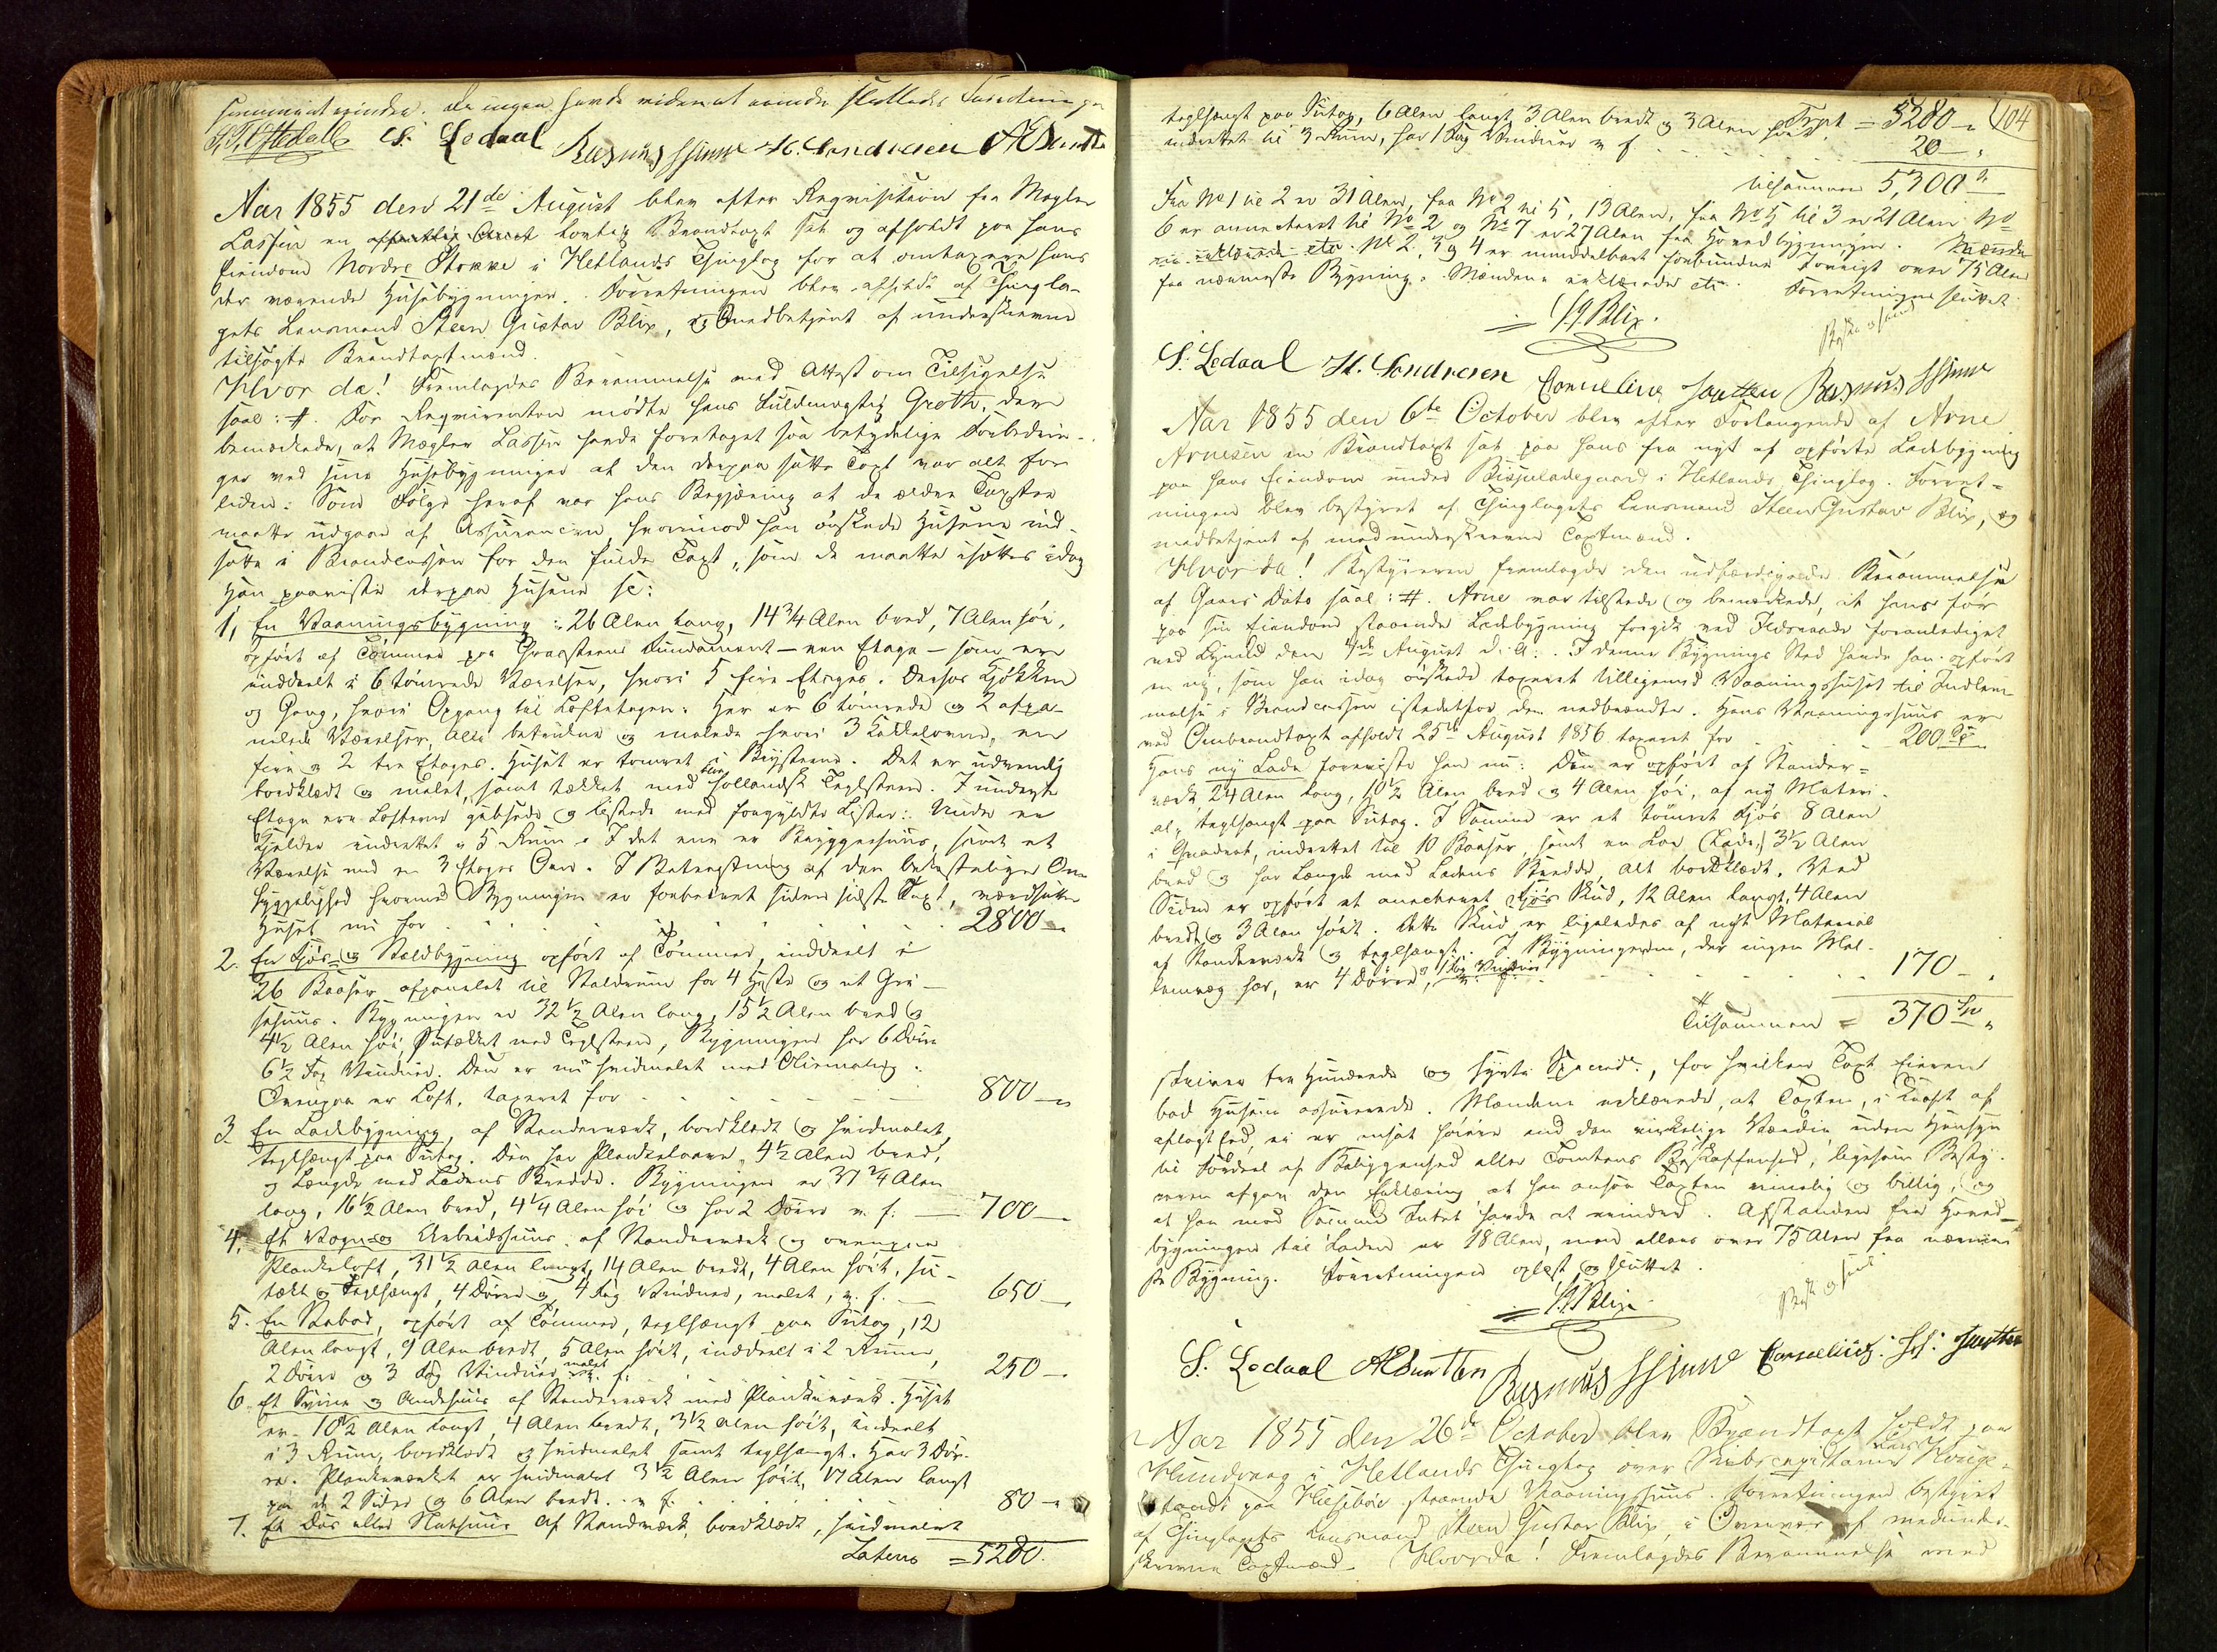 sammen at erindre. Da ingen havde videre at erindre sluttedes Forretningen
S. Ledaal Rasmus Hinne H. Sondresen
Aar 1855 den 21de August blev efter Reqvisition fra Mægler
Lassen en lovlig Brandtaxt sat og afholdt paa hans
Eiendom Nordre Stokke i Hetlands Thinglag for at omtaxere hans
der værende Huusebygninger. Forretningen blev afholdt af Thingla-
gets Lensmand Steen Gustav Blix, og medbetjent af underskrevne
tilsagte Brandtaxtmænd.
Hvor da! Fremlagdes Berammelse med Attest om Tilsigelse
saal: #. For Reqvirenten mødte hans Fuldmægtig Groth, der
bemærkede, at Mægler Lassen havde foretaget saa betydelige Forbedrin-
ger ved sine Huusebygninger at den derpaa satte Taxt var alt for
liden. Som Følge heraf var hans Begjæring at de ældre Taxter
maatte udgaae af Assurancen, hvorimod han ønskede Husene ind-
satte i Brandcassen for den fulde Taxt, som de maatte isættes idag
Han paaviste derpaa Husene sc:
1, En Vaaningsbygning: 26 Alen lang, 14 3/4 Alen bred, 7 Alen høi,
opført af Tømmer paa Graasteens Fundament – een Etage – som er
inddeelt i 6 tømrede Værelser, hvori 5 fire Etages. Desfor Kjøkken
og Gang, hvori Opgang til Loftetagen: Her er 6 tømrede og 2 afpa-
nelede Værelser, alle betrukne og malede hvori 3 Kakkelovne, een
fire og 2 tre Etages. Huset er tomret i Bygsteene. Det er udvendig
bordklædt og malet, samt tækket med Hollandsk Teglsteen. I underste
Etage ere Lofterne gibsede og listede med forgyldte Lister: Under er
Kjelder indrettet i 5 Rum. I det ene er Bryggerhuus, samt et
Værelse med en 3 Etages Ovn. I Betragtning af den bekostelige Om-
hyggelighed hvormed Bygningen er forbedret siden sidste Taxt, værdsættes
Huset nu for 2800 –
2. En Fjøs- og Staldbygning opført af Tømmer, inddeelt i
26 Baaser afpanelet til Staldrum for 4 Heste og et Gri-
sehuus. Bygningen er 32 1/2 Alen lang, 15 1/2 Alen bred og
4 1/2 Alen høi, sutækket med Teglsteen, Bygningen har 6 Døre
6 1/2 Fag Vinduer. Den er nu hvidmalet med Oliemaling.
Ovenpaa er Loft, taxeret for 800 –
3 En Ladebygning, af Standerværk, bordklædt og hvidmalet,
teglhængt paa Sutag. Den har Plankelaave, 4 1/2 Alen bred,
og Længde med Ladens Bredde. Bygningen er 37 3/4 Alen
lang, 16 1/2 Alen bred, 4 1/4 Alen høi og har 2 Døre v. f. – 700 –
4. Et Vogn- og Arbeidshuus, af Standerværk og ovenpaa
Plankeloft, 31 1/2 Alen langt, 14 Alen bredt, 4 Alen høit, su-
tækt og Teglhængt, 4 Døre og 4 Fag Vinduer, malet, v. f. – 650 –
5. En Stabod, opført af Tømmer, teglhængt paa Sutag, 12
Alen langt, 9 Alen bredt, 5 Alen høit, inddeelt i 2 Rum,
2 Døre og 3 Fag Vinduer malet v. f. 250 –
6. Et Sviine og Andehuus af Standerværk med Plankeværk. Huset
er 10 1/2 Alen langt, 4 Alen bredt, 3 1/2 Alen høit, inddeelt
i 3 Rum, bordklædt og hvidmalet samt teglhængt. Har 3 Dø-
re. Plankeværket er hvidmalet 3 1/2 Alen høit, 17 Alen langt
paa de 2 Sider og 6 Alen bredt. v. f. 80 –
7. Et Das eller Nathuus af Standværk, bordklædt, hvidmalet
Latere = 5280.
104
teglhængt paa Sutag, 6 Alen langt 3 Alen bredt og 3 Alen høit, Trpt = 5280 –
indrettet til 3 Rum, har 1 Fag Vinduer v. f. 20 –
tilsammen 5,300
Fra No 1 til 2 er 31 Alen, fra No 2 til 5, 13 Alen, fra No 5 til 3 er 21 Alen. No
6 er annecteret til No 2 og No 7 er 27 Alen fra Hovedbygningen. Mændene
erklærede etc. No 2, 3 og 4 er umiddelbart forbundne Forøvrigt over 75 Alen
fra nærmeste Bygning. Mændene erklærede etc. Forretningen sluttet.
S. G. Blix.
S. Ledaal H. Sondresen Cornelius Rasmus Hinne
Aar 1855 den 6te October blev efter Forlangende af Arne
Arnesen en Brandtaxt sat paa hans fra nyt af opførte Ladebygning
paa hans Eiendom under Bispeladegaard i Hetlands Thinglag. Forret-
ningen blev bestyret af Thinglagets Lensmand Steen Gustav Blix, og
medbetjent af medunderskrevne Taxtmænd.
Hvor da! Bestyreren fremlagde den udfærdigede Berammelse
af Gaars Dato saal: #. Arne var tilstede og bemærkede, at hans før
paa sin Eiendom staaende Ladebygning forgik ved Ildsvaade foranlediget
ved Lynild den August d. A. I denne Bygnings Sted havde han opført
en ny, som han idag ønskede taxeret tilligemed Vaaningshuset til Indlem-
melse i Brandcassen istedetfor den nedbrændte. Hans Vaaningshuus er
ved Ombrandtaxt afholdt 25de August 1856 taxeret for 200 Sp
Hans ny Lade foreviste han nu: Den er opført af Stander-
værk, 24 Alen lang, 10 1/2 Alen bred og 4 Alen høi, af ny Materi-
al, teglhængt paa Sutag. I Samme er et tømret Fjøs 8 Alen
i Qvadrat, indrettet til 10 Baaser, samt en Loe (Lade) 3 1/2 Alen
bred og har Længde med Ladens Bredde, alt bordklædt. Ved
Siden er opført et annecteret Fjøs Skud, 12 Alen langt, 4 Alen
bredt og 3 Alen høit. Dette Skud er ligeledes af nyt Material
af Standerværk og teglhængt. I Bygningerne, der ingen Mel-
lemvæg har, er 4 Døre, 1 Fag Vinduer v. f. 170 –
Tilsammen = 370 Sp
skriver tre Hundrede og sytti Specied., for hvilken Taxt Eieren
bad Husene assurerede. Mændene erklærede, at Taxten, i Kraft af
aflagt Eed, ei er ansat høiere end den virkelige Værdie uden Hensyn
til Fordeel af Beliggenhed eller Tomtens Beskaffenhed, ligesom Besty-
reren afgav den Erklæring at han ansaae Taxten rimelig og billig, og
at han mod Samme Intet havde at erindre. Afstanden fra Hoved-
bygningen til Laden er 18 Alen, men ellers over 75 Alen fra nærme-
ste Bygning. Forretningen oplæst og sluttet.
S. G. Blix
S. Ledaal Rasmus Hinne Cornelius
Aar 1855 den 26de October blev Brandtaxt holdt paa
Hundvaag i Hetlands Thinglag over
paa Husebøe staaende Vaaningshuus. Forretningen bestyret
af Thinglagets Lensmand Steen Gustav Blix, i Overvær af medunder-
skrevne Taxtmænd. Hvorda! Fremlagdes Berammelse med